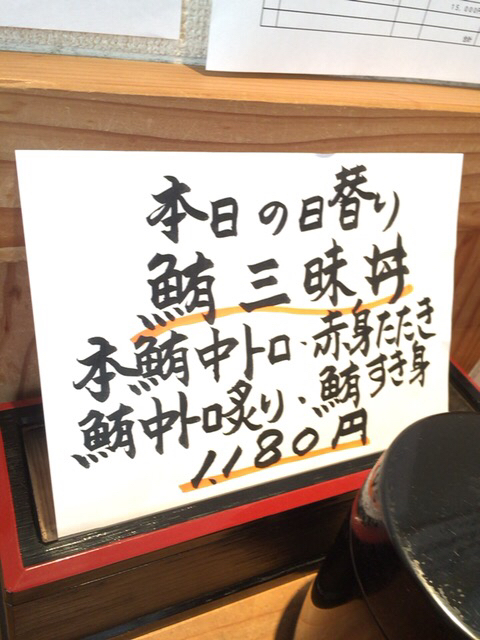 本日の日替り
鮪三昧丼
本鮪中トロ・赤身たたき
鮪中トロ炙り・鮪すき身
1,180円